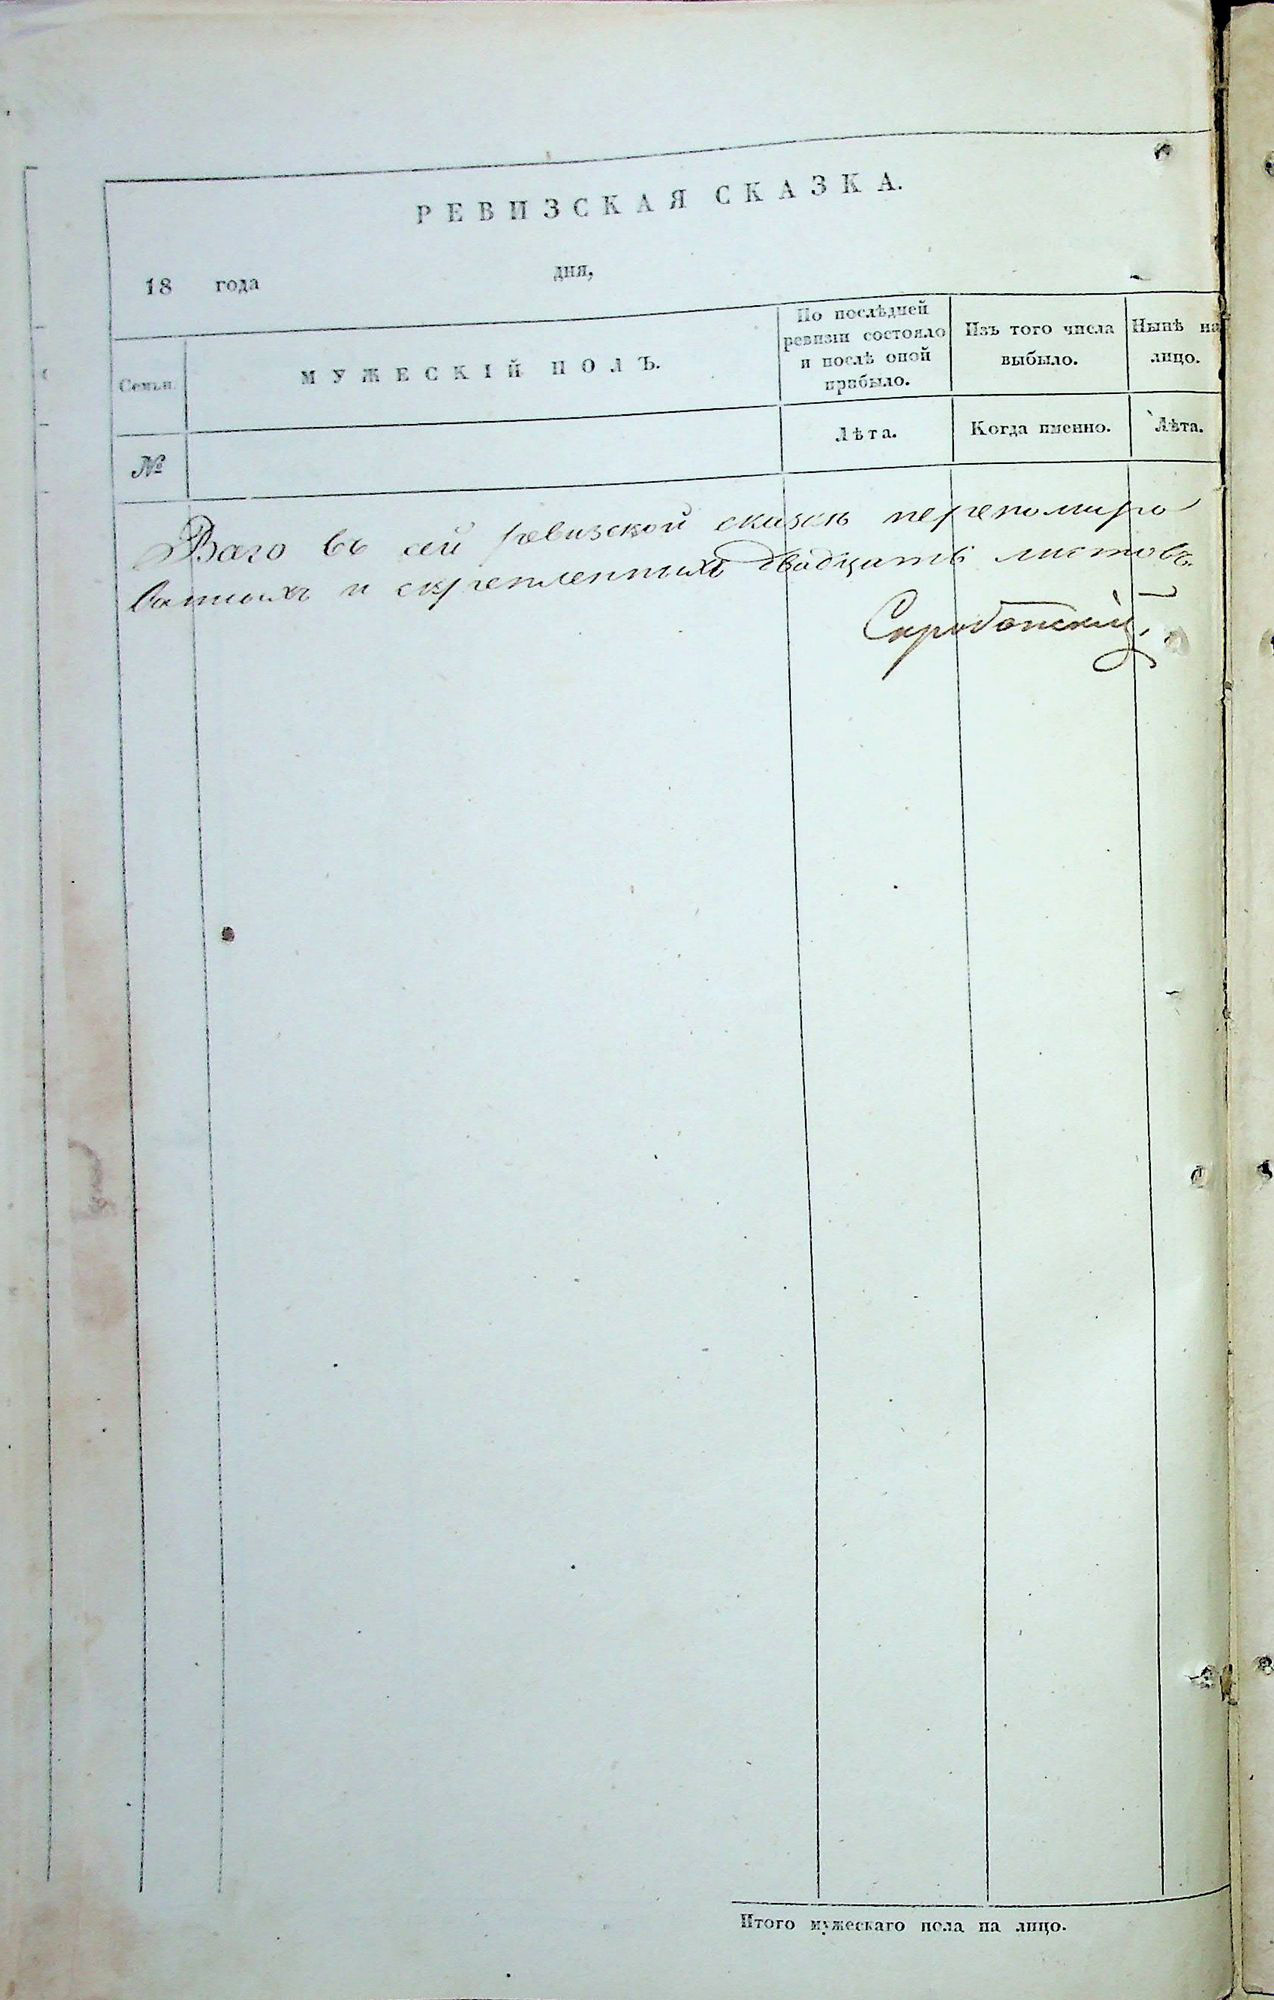 РЕВИЗСКАЯ СКАЗКА.
18 года дня,
Семьи.
МУЖЕСКІЙ ПОЛЪ.
По послѣдней
ревизіи состояло
и послѣ оной
прибыло.
Изъ того числа
выбыло.
Нынѣ на
лицо.
№
Лѣта.
Когда именно.
Лѣта.
Всего въ сей ревизской сказкѣ перенумеро
ванныхъ и скрепленныхъ двадцать листовъ.
Итого мужескаго пола на лицо.